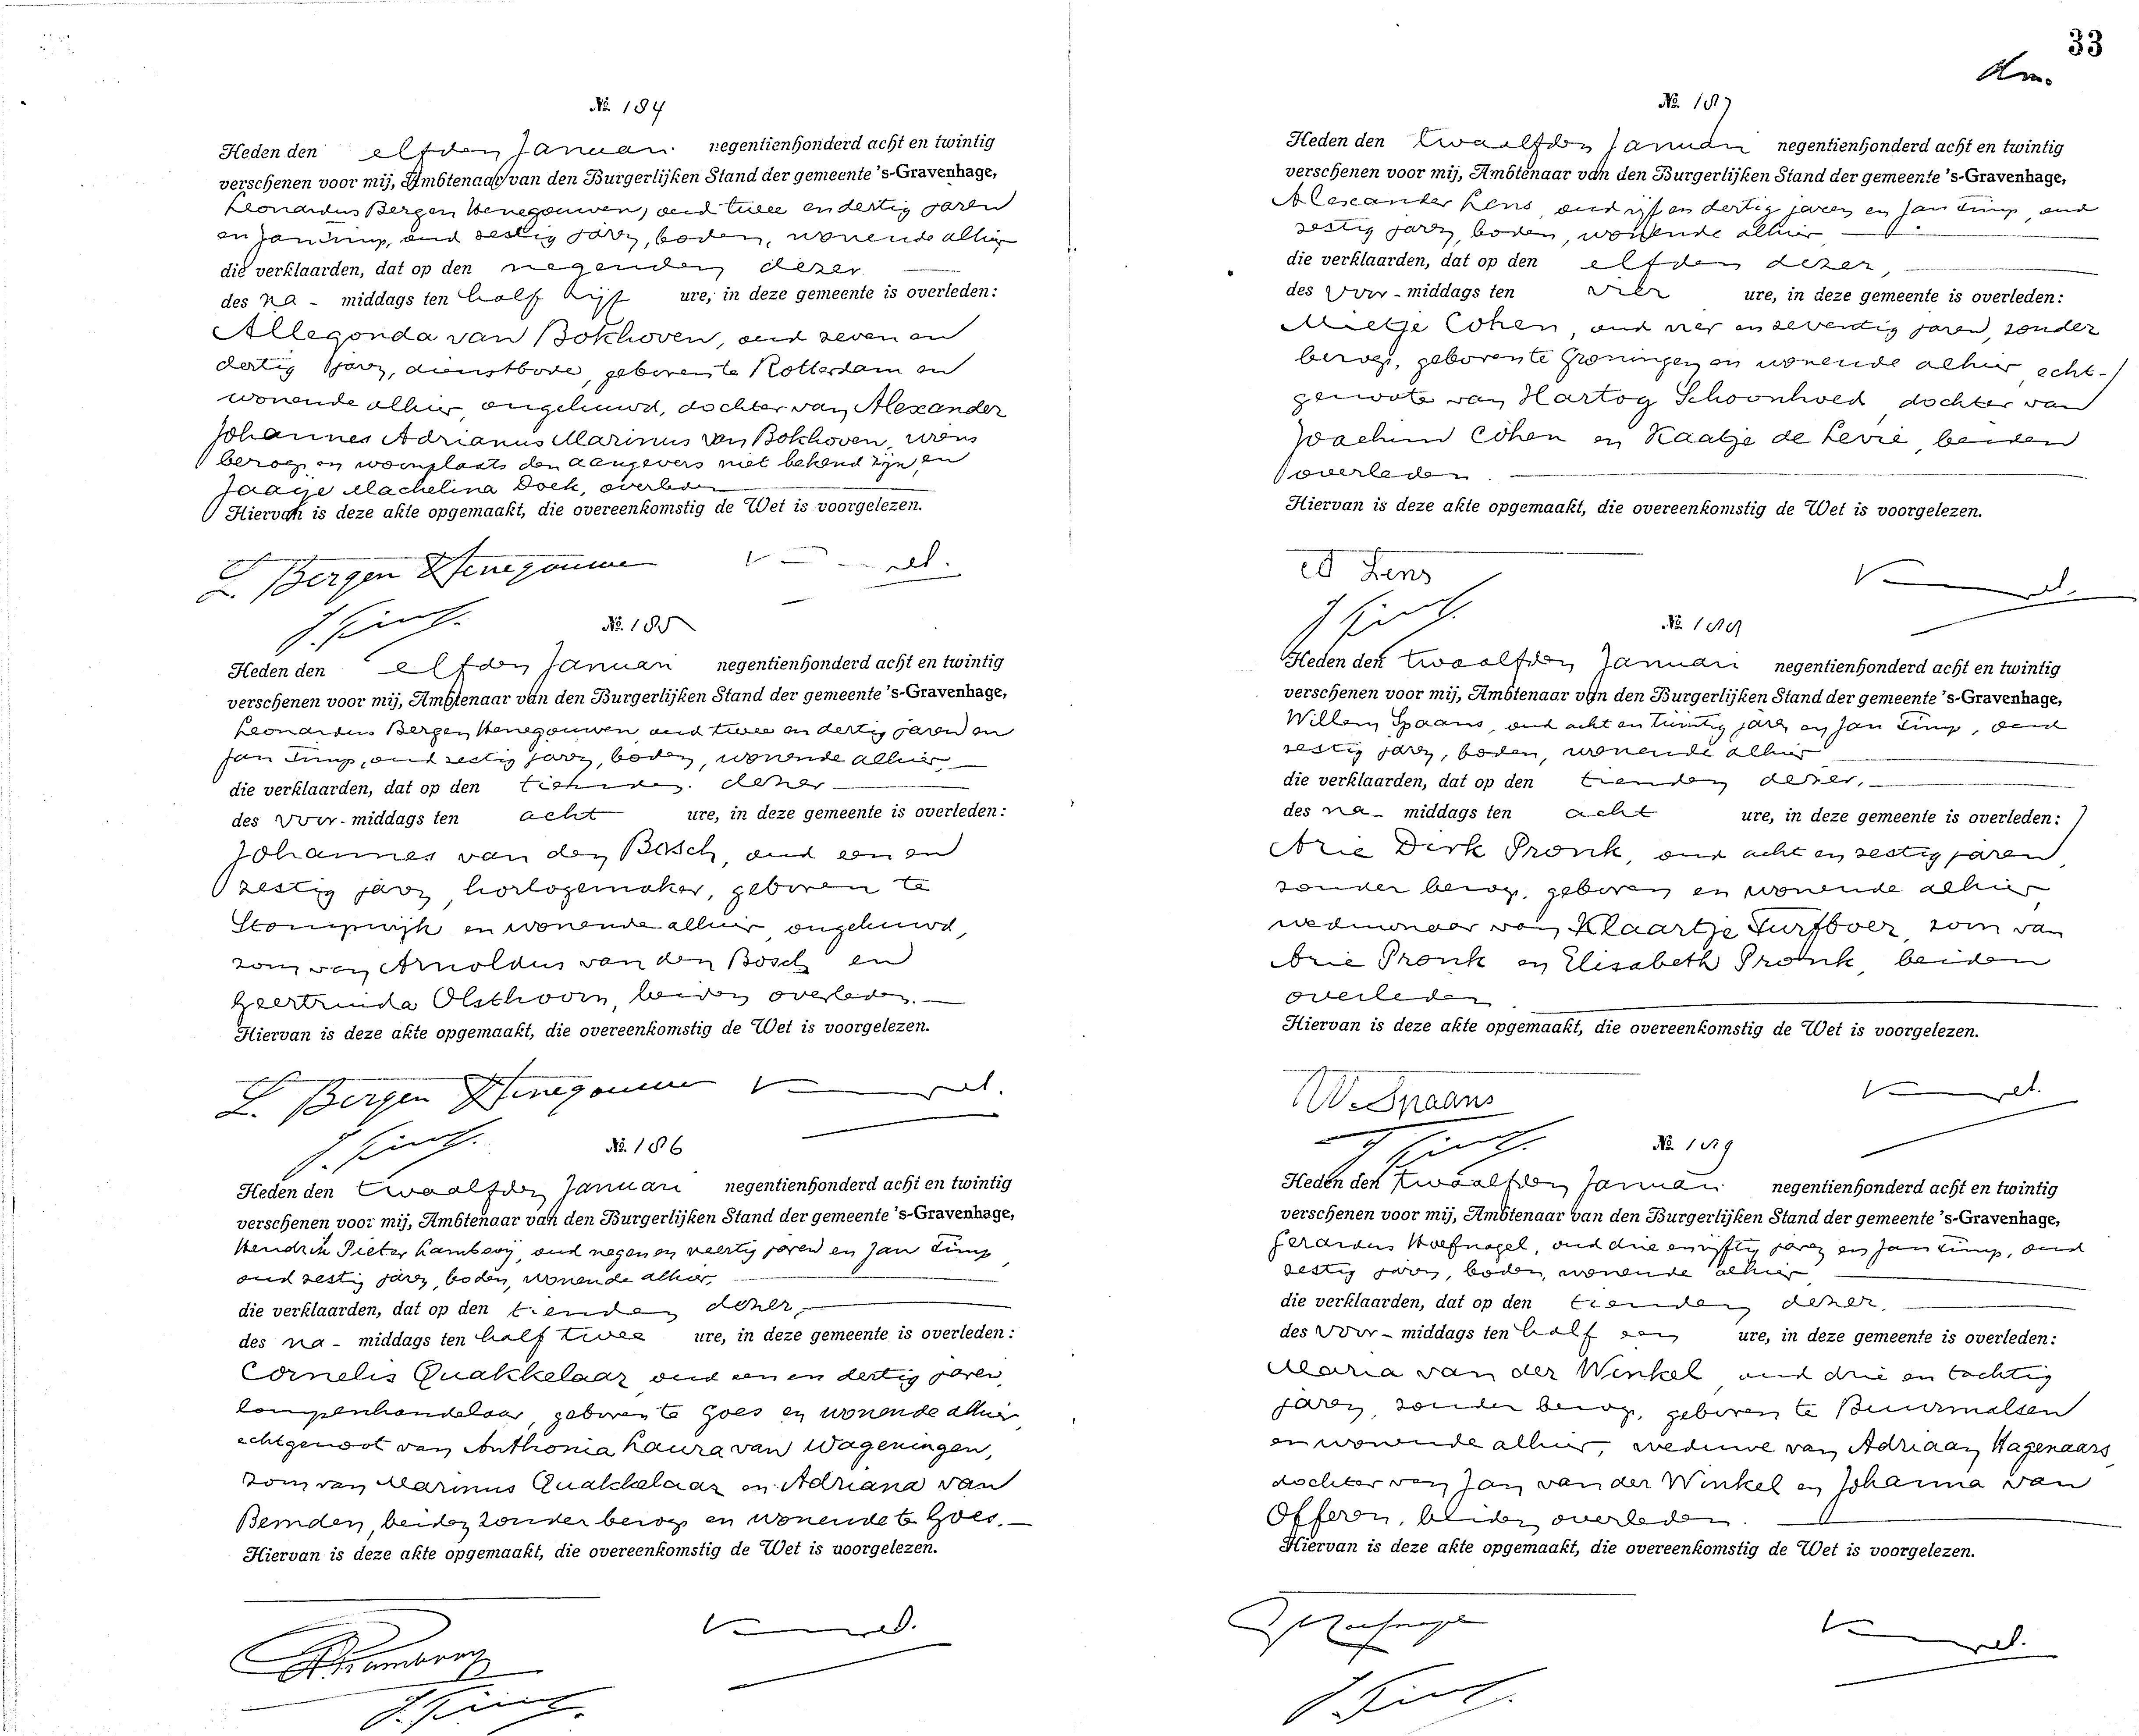 № 184
Heden den elfden Januari negentienhonderd acht en twintig
verschenen voor mij, Ambtenaar van den Burgerlijken Stand der gemeente 's-Gravenhage,
Leonardus Bergen Henegouwen, oud twee en dertig jaren
en Jan Timp, oud zestig jaren, boden, wonende alhier
die verklaarden, dat op den negenden dezer
des na-middags ten half vijf ure, in deze gemeente is overleden:
Allegonda van Bokhoven, oud zeven en
dertig jaren, dienstbode, geboren te Rotterdam en
wonende alhier, ongehuwd, dochter van Alexander
Johannes Adrianus Marinus van Bokhoven, wiens
beroep en woonplaats den aangevers niet bekend zijn, en
Jaapje Machelina Doek, overleden
Hiervan is deze akte opgemaakt, die overeenkomstig de Wet is voorgelezen.
L. Bergen Henegouwen
J. Timp.
№ 185
Heden den elfden Januari negentienhonderd acht en twintig
verschenen voor mij, Ambtenaar van den Burgerlijken Stand der gemeente 's-Gravenhage,
Leonardus Bergen Henegouwen, oud twee en dertig jaren en
Jan Timp, oud zestig jaren, boden, wonende alhier,
die verklaarden, dat op den tienden dezer
des voor-middags ten acht ure, in deze gemeente is overleden:
Johannes van den Bosch, oud een en
zestig jaren, horlogemaker, geboren te
Stompwijk en wonende alhier, ongehuwd,
zoon van Arnoldus van den Bosch en
Geertruida Olsthoorn, beiden overleden.
Hiervan is deze akte opgemaakt, die overeenkomstig de Wet is voorgelezen.
L. Bergen Henegouwen
J. Timp.
№ 186
Heden den twaalfden Januari negentienhonderd acht en twintig
verschenen voor mij, Ambtenaar van den Burgerlijken Stand der gemeente 's-Gravenhage,
Hendrik Pieter Lambooij, oud negen en veertig jaren en Jan Timp,
oud zestig jaren, boden, wonende alhier,
die verklaarden, dat op den tienden dezer,
des na-middags ten half twee ure, in deze gemeente is overleden:
Cornelis Quakkelaar, oud een en dertig jaren,
lompenhandelaar, geboren te Goes en wonende alhier,
echtgenoot van Anthonia Laura van Wageningen,
zoon van Marinus Quakkelaar en Adriana van
Bemden, beiden zonder beroep en wonende te Goes.
Hiervan is deze akte opgemaakt, die overeenkomstig de Wet is voorgelezen.
J. Timp.
33
№ 187
Heden den twaalfden Januari negentienhonderd acht en twintig
verschenen voor mij, Ambtenaar van den Burgerlijken Stand der gemeente 's-Gravenhage,
Alexander Lens, oud vijf en dertig jaren en Jan Timp, oud
zestig jaren, boden, wonende alhier
die verklaarden, dat op den elfden dezer,
des voor-middags ten vier ure, in deze gemeente is overleden:
Mietje Cohen, oud vier en zeventig jaren, zonder
beroep, geboren te Groningen en wonende alhier, echt-
genoote van Hartog Schoonhoed, dochter van
Joachim Cohen en Kaatje de Levie, beiden
overleden.
Hiervan is deze akte opgemaakt, die overeenkomstig de Wet is voorgelezen.
A Lens
J Timp.
№ 188
Heden den twaalfden Januari negentienhonderd acht en twintig
verschenen voor mij, Ambtenaar van den Burgerlijken Stand der gemeente 's-Gravenhage,
Willem Spaans, oud acht en twintig jaren en Jan Timp, oud
zestig jaren, boden, wonende alhier
die verklaarden, dat op den tienden dezer,
des na-middags ten acht ure, in deze gemeente is overleden:
Arie Dirk Pronk, oud acht en zestig jaren,
zonder beroep, geboren en wonende alhier,
weduwnaar van Klaartje Turfboer, zoon van
Arie Pronk en Elisabeth Pronk, beiden
overleden.
Hiervan is deze akte opgemaakt, die overeenkomstig de Wet is voorgelezen.
W. Spaans
J Timp.
№ 189
Heden den twaalfden Januari negentienhonderd acht en twintig
verschenen voor mij, Ambtenaar van den Burgerlijken Stand der gemeente 's-Gravenhage,
Gerardus Hoefnagel, oud drie en vijftig jaren en Jan Timp, oud
zestig jaren, boden, wonende alhier,
die verklaarden, dat op den tienden dezer,
des voor-middags ten half een ure, in deze gemeente is overleden:
Maria van der Winkel, oud drie en tachtig
jaren, zonder beroep, geboren te Buurmalsen
en wonende alhier, weduwe van Adriaan Wagenaars,
dochter van Jan van der Winkel en Johanna van
Offeren, beiden overleden.
Hiervan is deze akte opgemaakt, die overeenkomstig de Wet is voorgelezen.
G Hoefnagel
J. Timp.